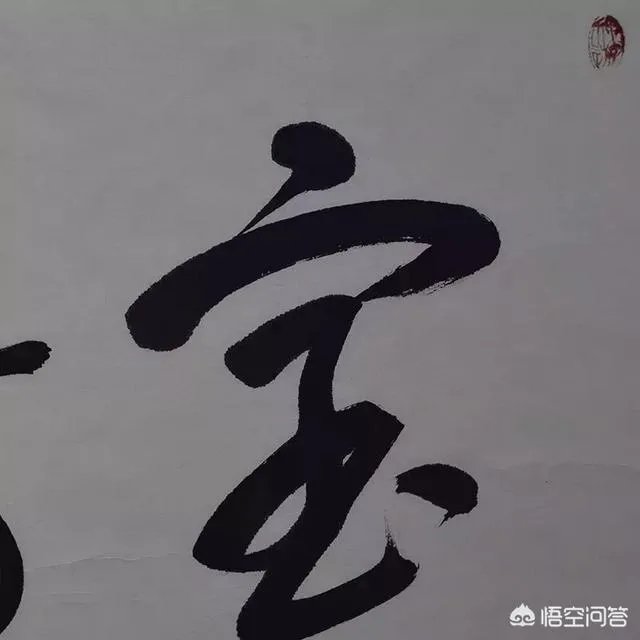 宝
悟空问答